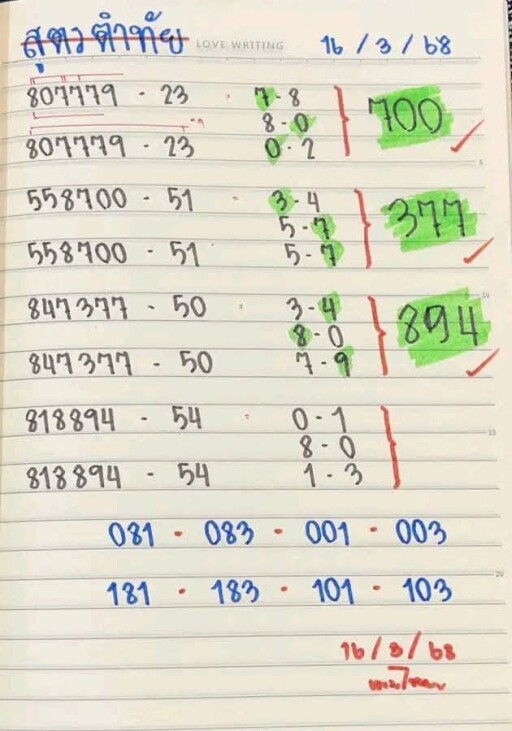 สูตรคำทัย LOVE WRITING 16/3/68
807779 - 23 - 7-8
8-0 700
807779 - 23 0-2
558700 - 51 - 3-4
5-7 377
558700 - 51 5-7
847377 - 50 - 3-4
8-0 894
847377 - 50 7-9
818894 - 54 - 0-1
8-0
818894 - 54 1-3
081 - 083 - 001 - 003
181 - 183 - 101 - 103
16/3/68